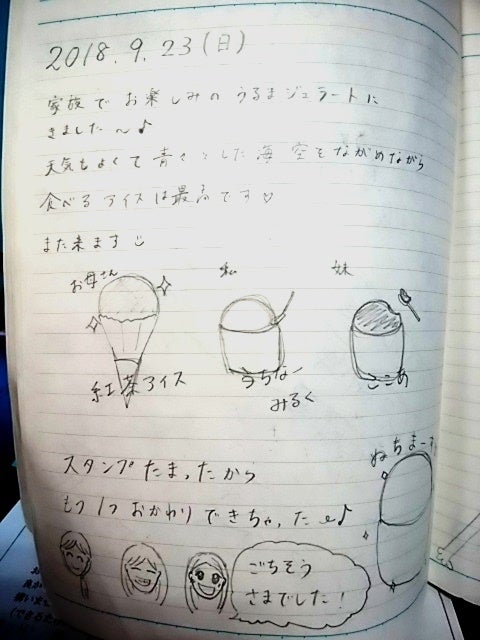 2018.9.23(日)
家族で お楽しみの うるまジェラートに
きました〜♪
天気もよくて 青々とした 海 空を ながめながら
食べる アイスは最高です♡
また来ます
お母さん
私
妹
紅茶アイス
うちなー
みるく
ねちまーす
スタンプ たまったから
もう1つ おかわり できちゃった〜♪
ごちそう
さまでした!